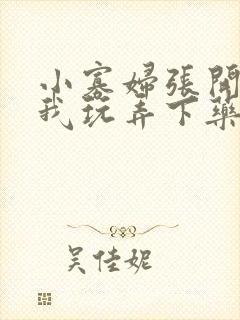 小寡婦張開
我玩弄下藥
吴佳妮